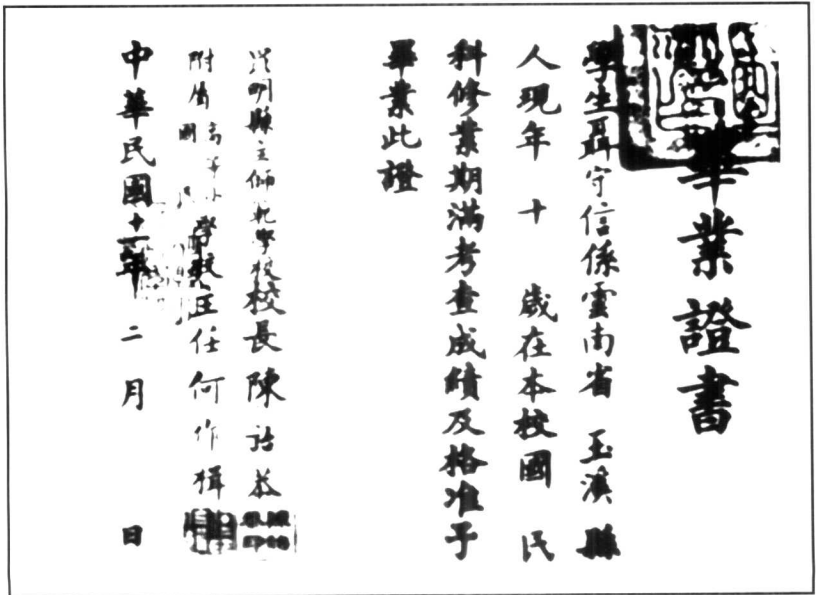 畢業證書
學生聶守信係雲南省 玉溪 縣
人現年 十 歲在本校國 民
科修業期滿考查成績及格准予
畢業此證
昆明縣立師範學校校長陳詒恭
附屬高等小國民學校主任何作楫
中華民國十一年 二 月 日